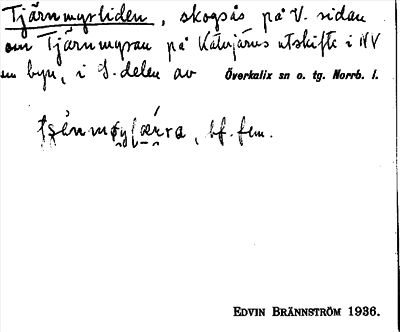 Tjärnmyrliden, skogsås på V. sidan
om Tjärnmyran på Katujärvs utskifte i NV
om byn, i S. delen av Överkalix sn o. tg. Norrb. l.
bf. fem.
EDVIN BRÄNNSTRÖM 1936.